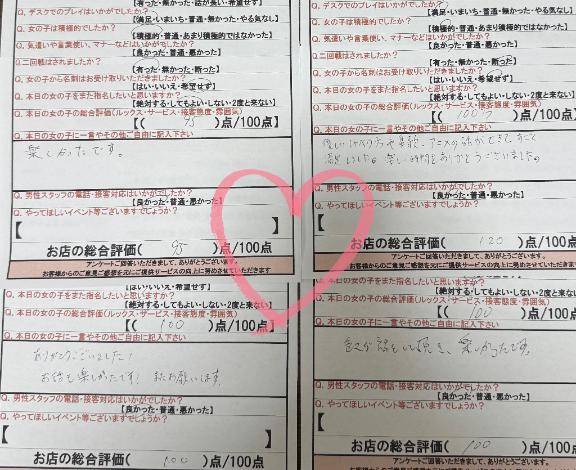 【有った・無かった・話が長い・希望せず】
Q. デスクでのプレイはいかがでしたか?
【満足・いまいち・普通・無かった・やる気なし】
Q. 女の子は積極的でしたか?
【積極的・普通・あまり積極的ではなかった】
Q. 気遣いや言葉使い、マナーなどはいかがでしたか?
【良かった・普通・悪かった】
Q. 二回戦はされましたか?
【有った・無かった・断った】
Q. 女の子から名刺はお受け取りいただきましたか?
【はい・いいえ・希望せず】
Q. 本日の女の子をまた指名したいと思いますか?
【絶対する・してもよい・しない・2度と来ない】
Q. 本日の女の子の総合評価(ルックス・サービス・接客態度・雰囲気)
【( 95 )点/100点】
Q. 本日の女の子に一言やその他ご自由に記入下さい
楽しかったです。
Q. 男性スタッフの電話・接客対応はいかがでしたか?
【良かった・普通・悪かった】
Q. やってほしいイベント等ございますでしょうか?
【 】
お店の総合評価( 95 )点/100点
アンケートご回答いただきまして、ありがとうございます。
お客様からのご意見ご感想を元にご提供サービスの向上に努めさせていただきます
Q. デスクでのプレイはいかがでしたか?
【満足・いまいち・普通・無かった・やる気なし】
Q. 女の子は積極的でしたか?
【積極的・普通・あまり積極的ではなかった】
Q. 気遣いや言葉使い、マナーなどはいかがでしたか?
【良かった・普通・悪かった】
Q. 二回戦はされましたか?
【有った・無かった・断った】
Q. 女の子から名刺はお受け取りいただきましたか?
【はい・いいえ・希望せず】
Q. 本日の女の子をまた指名したいと思いますか?
【絶対する・してもよい・しない・2度と来ない】
Q. 本日の女の子の総合評価(ルックス・サービス・接客態度・雰囲気)
【( )点/100点】
Q. 本日の女の子に一言やその他ご自由に記入下さい
アニメの話ができて、すごく
楽しい時間をありがとうございました。
Q. 男性スタッフの電話・接客対応はいかがでしたか?
【良かった・普通・悪かった】
Q. やってほしいイベント等ございますでしょうか?
【 】
お店の総合評価( 120 )点/100点
アンケートご回答いただきまして、ありがとうございます。
お客様からのご意見ご感想を元にご提供サービスの向上に努めさせていただきます
【はい・いいえ・希望せず】
Q. 本日の女の子をまた指名したいと思いますか?
【絶対する・してもよい・しない・2度と来ない】
Q. 本日の女の子の総合評価(ルックス・サービス・接客態度・雰囲気)
【( 100 )点/100点】
Q. 本日の女の子に一言やその他ご自由に記入下さい
ありがとうございました!
お話も楽しかったです! またお願いします。
Q. 男性スタッフの電話・接客対応はいかがでしたか?
【良かった・普通・悪かった】
Q. やってほしいイベント等ございますでしょうか?
【 】
お店の総合評価( 100 )点/100点
【絶対する・してもよい・しない・2度と来ない】
Q. 本日の女の子の総合評価(ルックス・サービス・接客態度・雰囲気)
【( 100 )点/100点】
Q. 本日の女の子に一言やその他ご自由に記入下さい
楽しかったです。
Q. 男性スタッフの電話・接客対応はいかがでしたか?
【良かった・普通・悪かった】
Q. やってほしいイベント等ございますでしょうか?
【 】
お店の総合評価( 100 )点/100点
アンケートご回答いただきまして、ありがとうございます。